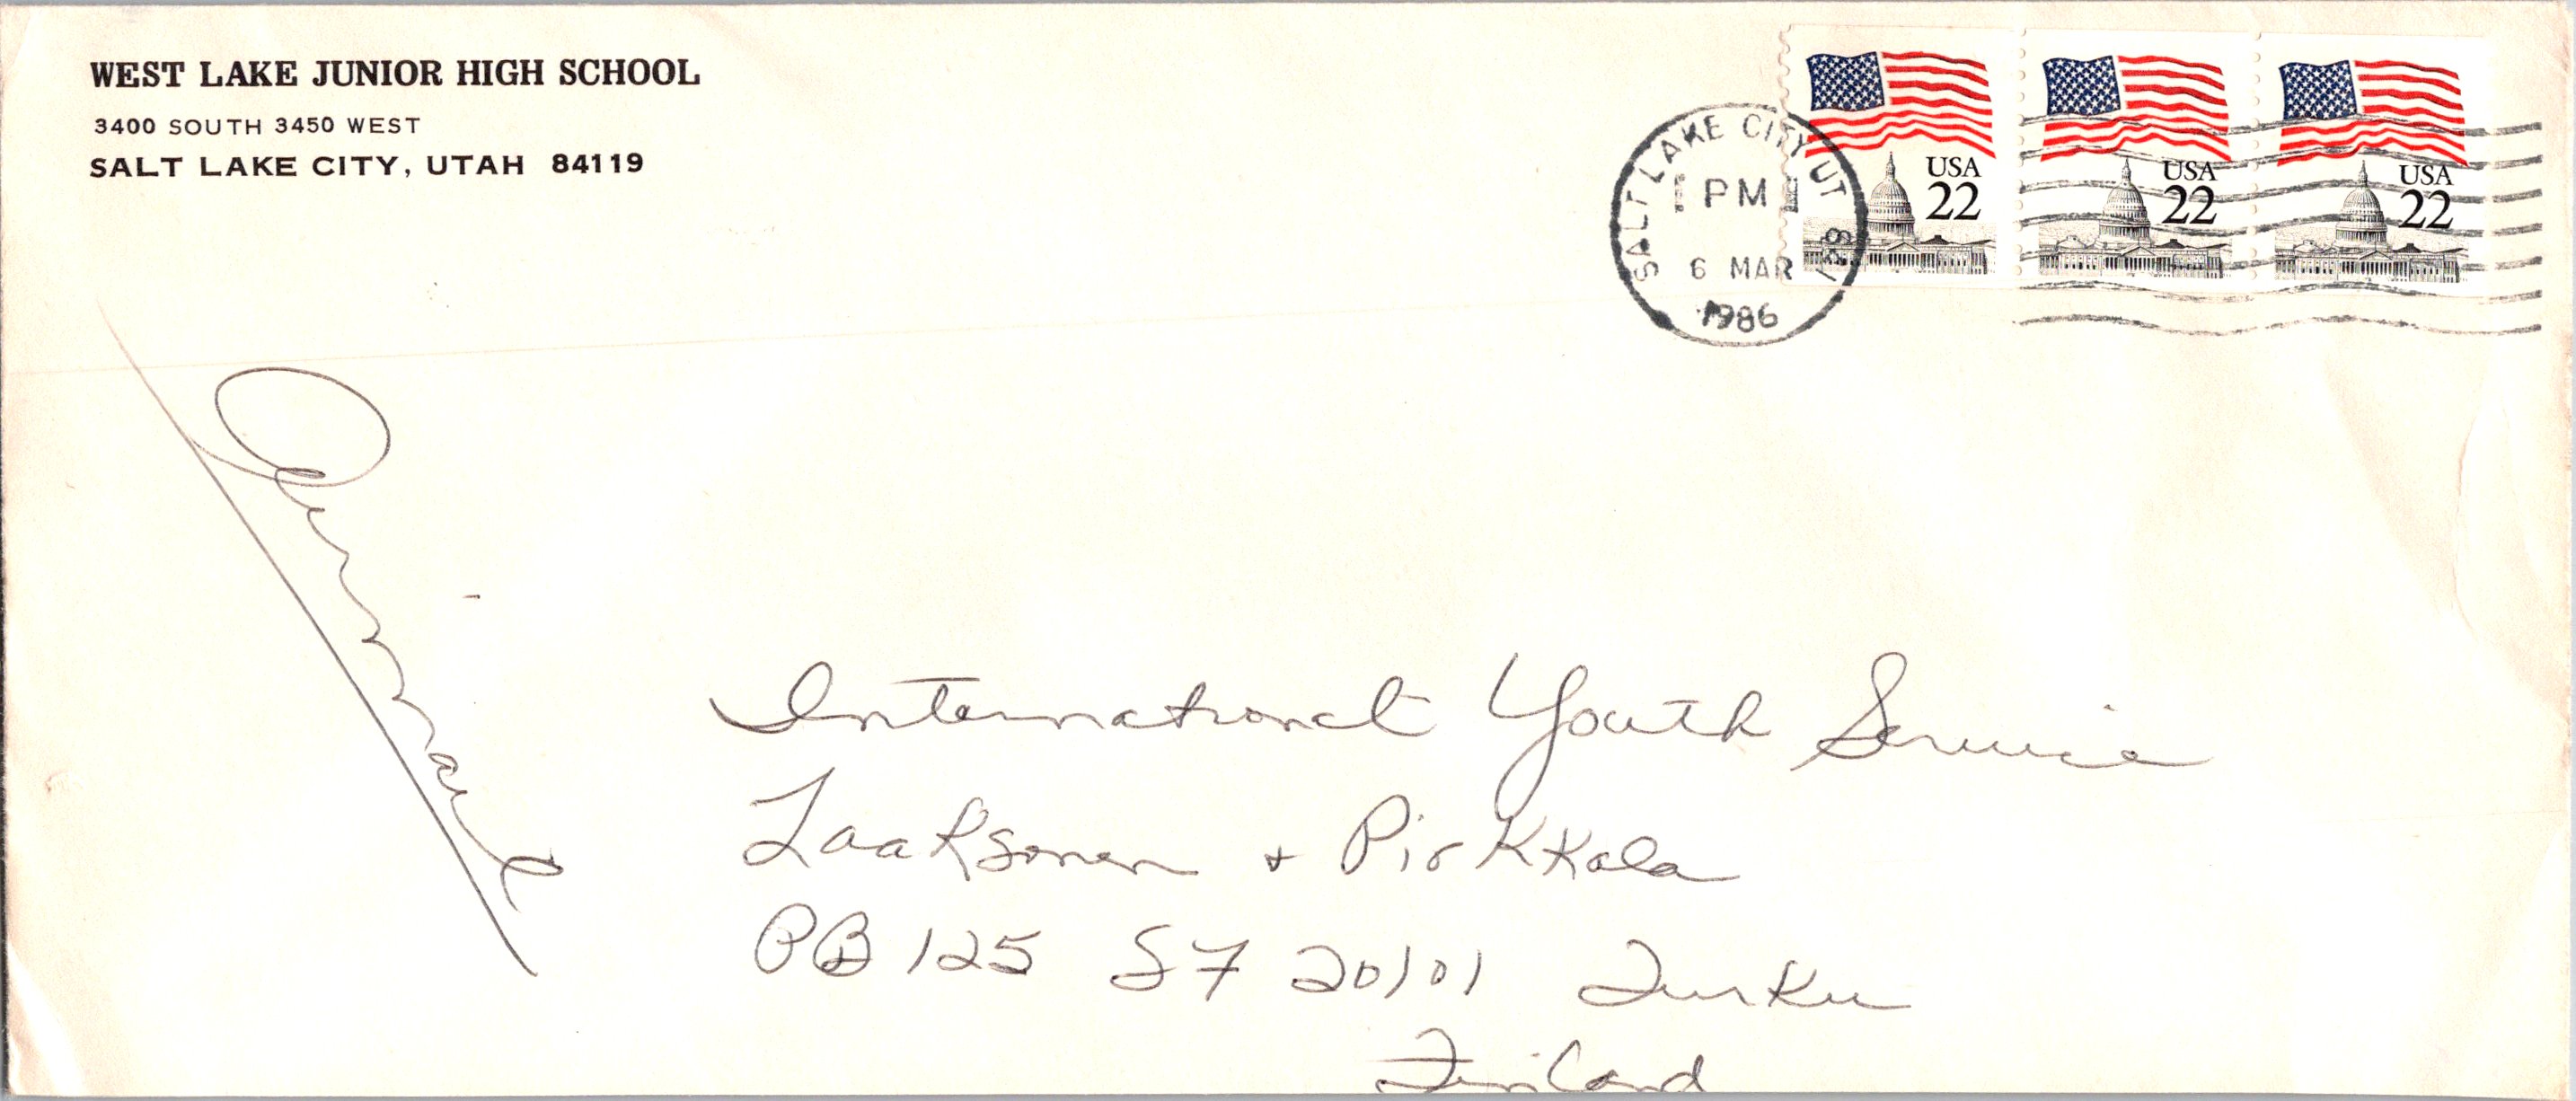 WEST LAKE JUNIOR HIGH SCHOOL
3400 SOUTH 3450 WEST
SALT LAKE CITY, UTAH 84119
SALT LAKE CITY UT 841
PM
6 MAR
1986
USA
22
USA
22
USA
22
Air Mail
International Youth Service
Laaksonen + Pirkkala
PB 125 SF 20101 Turku
Finland